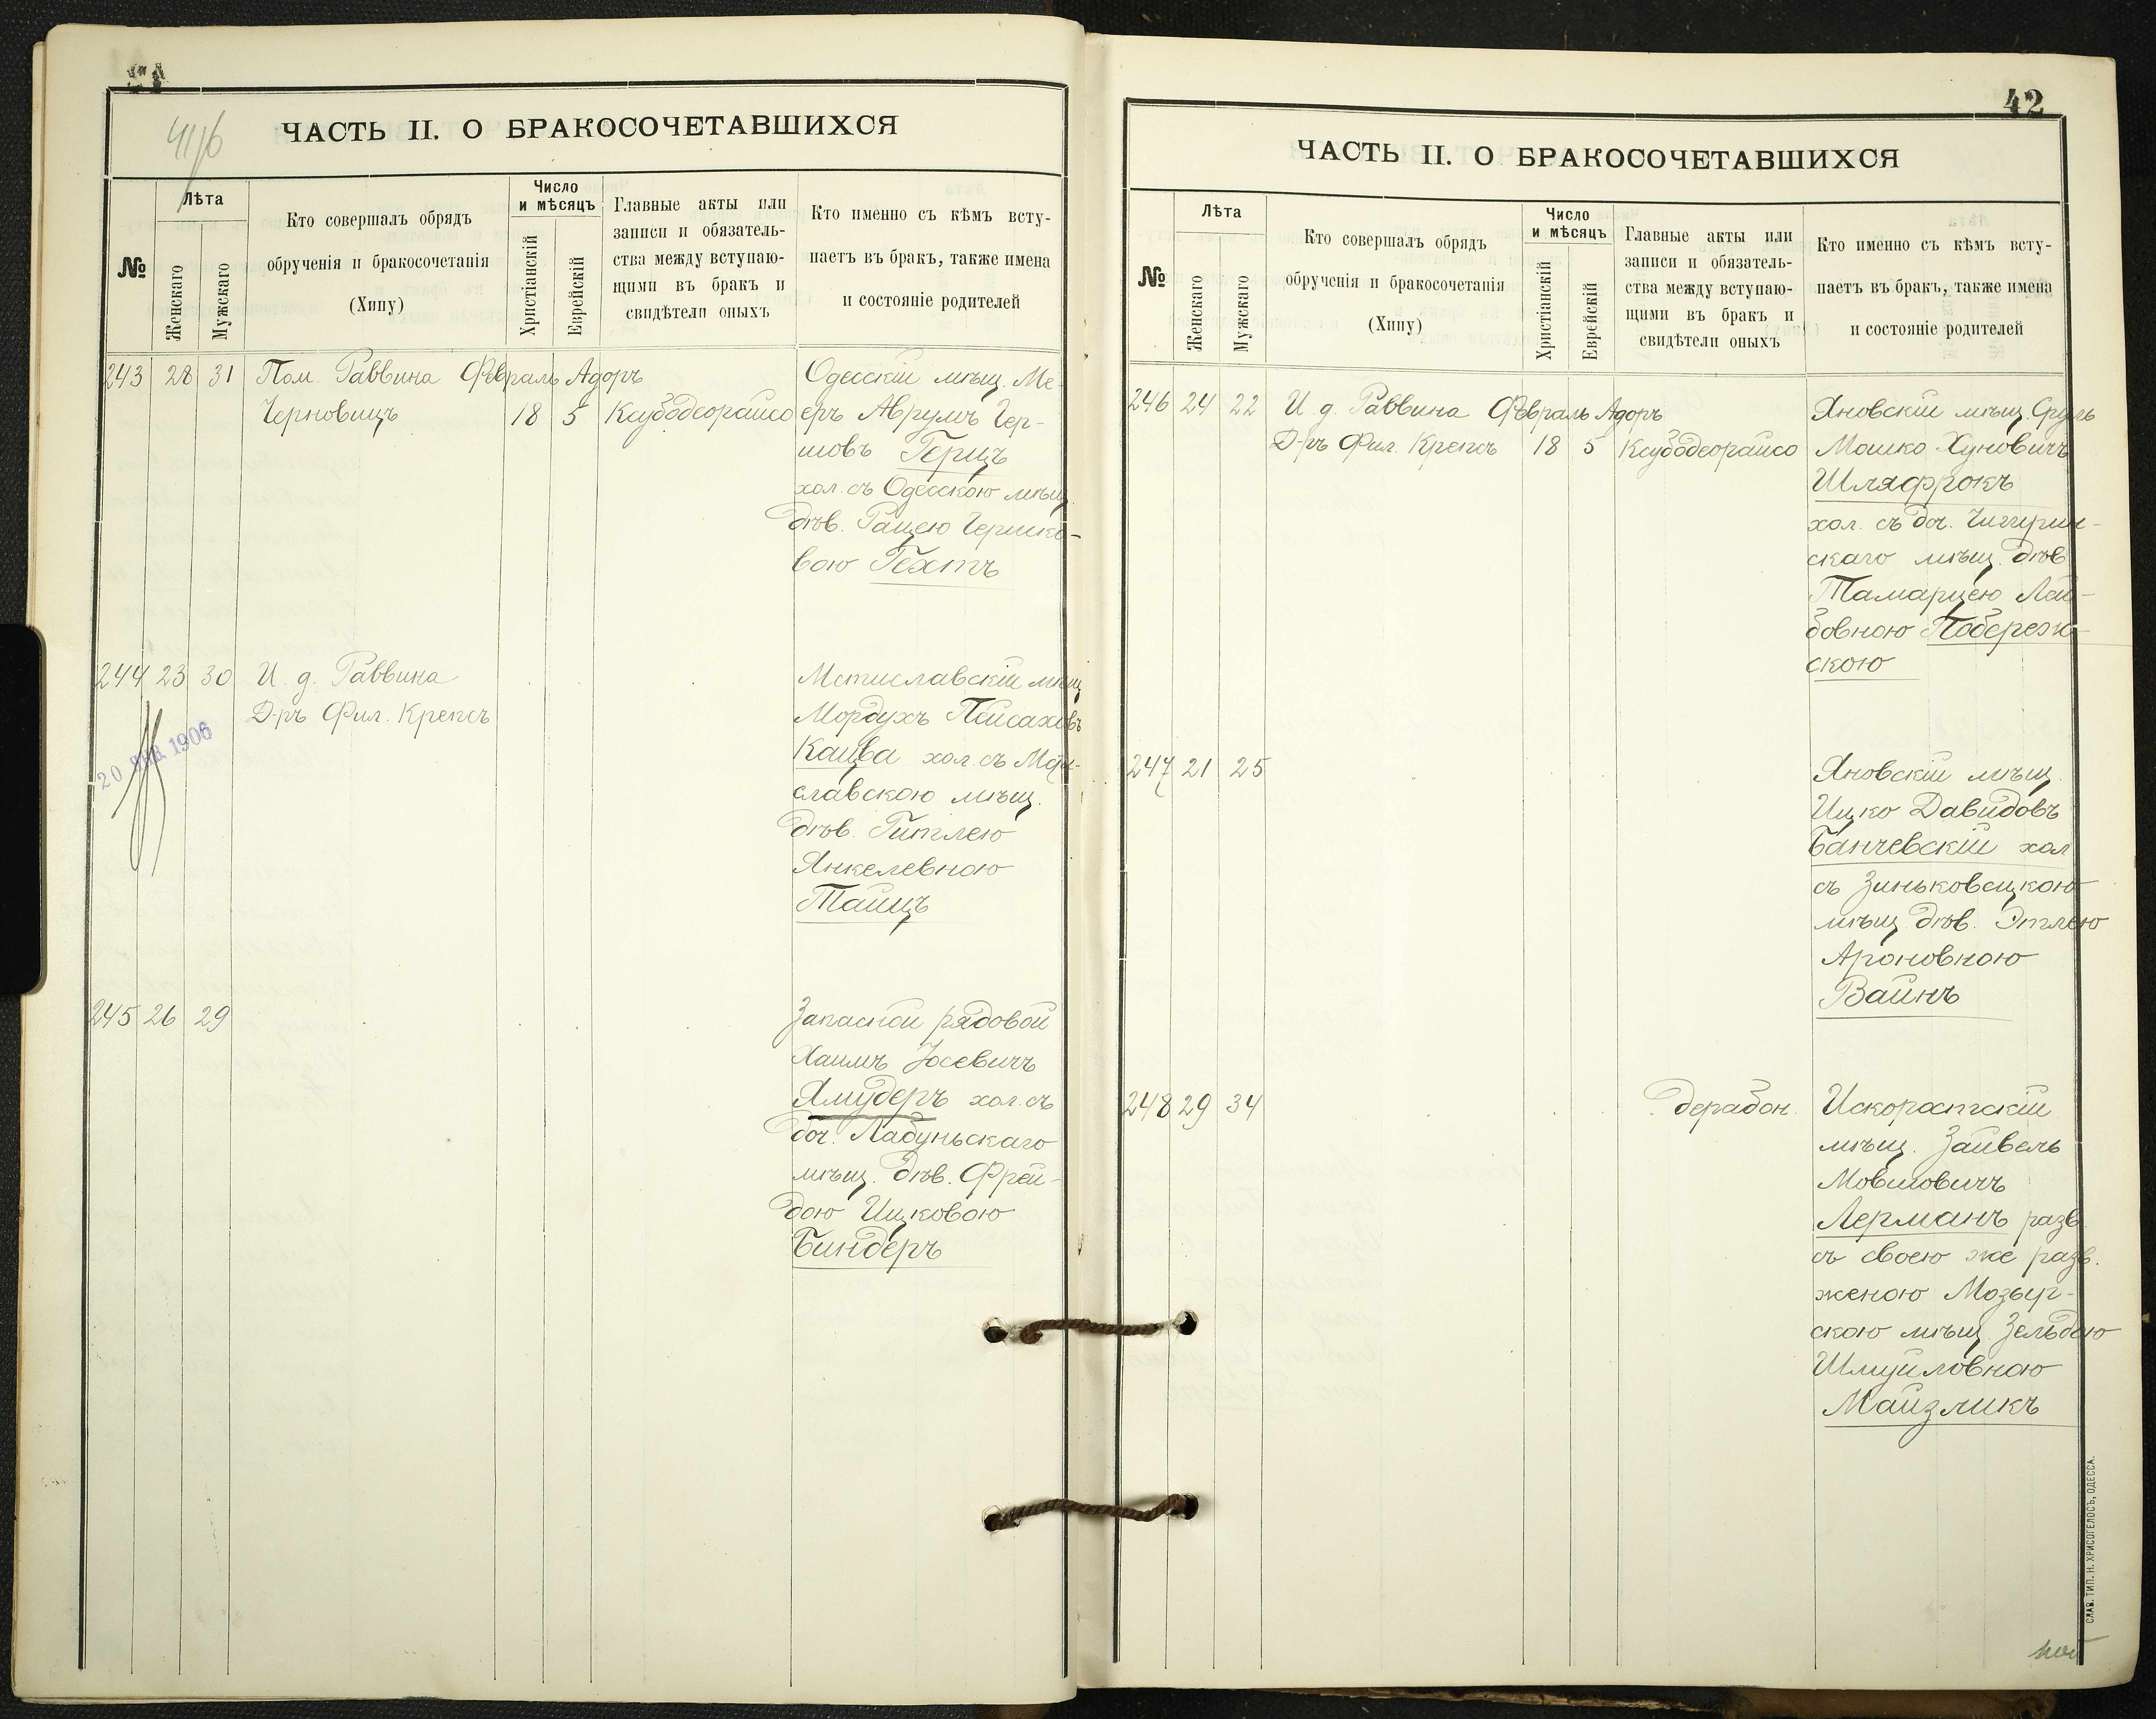 41/6
ЧАСТЬ II. О БРАКОСОЧЕТАВШИХСЯ
№
Лѣта
Женскаго
Мужскаго
Кто совершалъ обрядъ
обрученія и бракосочетанія
(Хипу)
Число
и мѣсяцъ
Христіанскій
Еврейскій
Главные акты или
записи и обязатель-
ства между вступаю-
щими въ бракъ и
свидѣтели оныхъ
Кто именно съ кѣмъ всту-
паетъ въ бракъ, также имена
и состояніе родителей
243 28 31 Пом. Раввина Февраль Адоръ Одесскій мѣщ. Ме-
Черновицъ 18 5 Ксубодеорайсо еръ Аврумъ Гер-
шовъ Герцъ
хол. съ Одесскою мѣщ.
дѣв. Рацею Гершко-
вою Гехтъ
244 23 30 И. д. Раввина Мстиславскій мѣщ
Д-ръ Фил. Крепсъ Мордухъ Пейсаховъ
20 ЯНВ. 1906
Кацва хол. съ Мсти-
славскою мѣщ.
дѣв. Гитлею
Янкелевною
Тайцъ
245 26 29 Запасной рядовой
Хаимъ Іосевичъ
Ямудеръ хол. съ
доч. Лабуньскаго
мѣщ. дѣв. Фрей-
дою Ицковою
Биндеръ
42
ЧАСТЬ II. О БРАКОСОЧЕТАВШИХСЯ
№
Лѣта
Женскаго
Мужскаго
Кто совершалъ обрядъ
обрученія и бракосочетанія
(Хипу)
Число
и мѣсяцъ
Христіанскій
Еврейскій
Главные акты или
записи и обязатель-
ства между вступаю-
щими въ бракъ и
свидѣтели оныхъ
Кто именно съ кѣмъ всту-
паетъ въ бракъ, также имена
и состояніе родителей
246 24 22 И. д. Раввина Февраль Адоръ Яновскій мѣщ. Сруль
Д-ръ Фил. Крепсъ 18 5 Ксубодеорайсо Мошко Хуновичъ
Шляфрокъ
хол. съ доч. Чигирин-
скаго мѣщ. дѣв
Тамарцею Лей-
бовною Побереж-
скою
247 21 25 Яновскій мѣщ.
Ицко Давидовъ
Банчевскій хол
съ Зиньковецкою
мѣщ. дѣв. Этлею
Ароновною
Вайнъ
248 29 34 дерабон. Искоростскій
мѣщ. Зайвель
Мовшовичъ
Лерманъ разв.
съ своею же разв.
женою Мозыр-
скою мѣщ. Зельдою
Шмуйловною
Майзликъ
СЛАВ. ТИП. Н. ХРИСОГЕЛОСЪ, ОДЕССА.